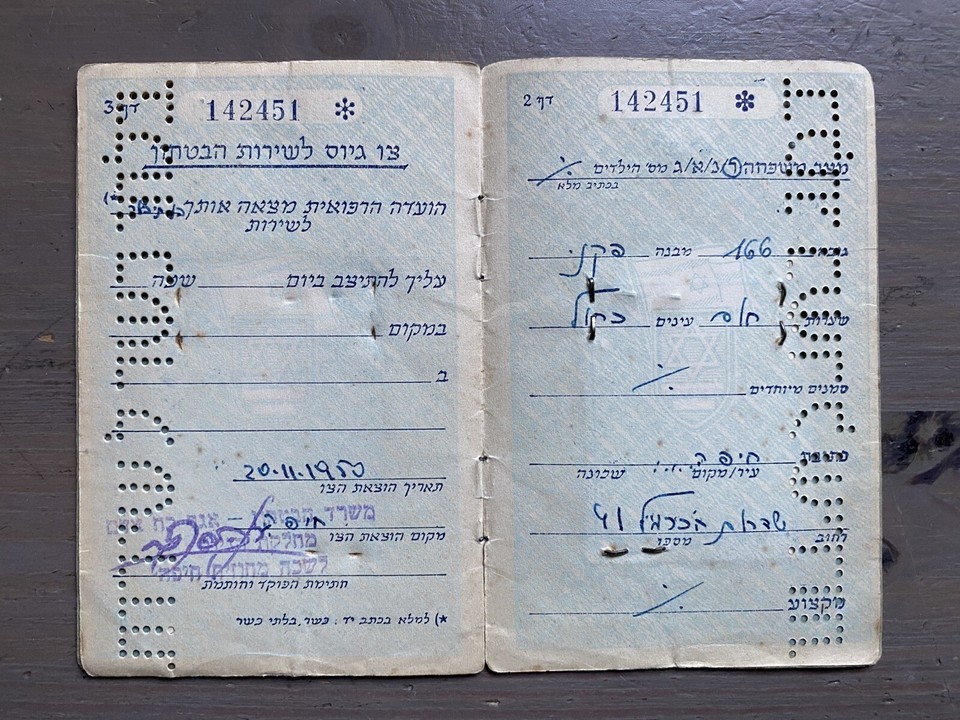 דף 2
142451 *
מצב משפחה ר/נ/א/ג מס׳ הילדים ./.
בכתיב מלא
גובה 166 מבנה
שערות חום עינים כחול
סמנים מיוחדים ./.
כתובת חיפה
עיר/מקום שכונה
רחוב שדרות הכרמל מספר 41
מקצוע ./.
דף 3
142451 *
צו גיוס לשירות הבטחון
הועדה הרפואית מצאה אותך *)
לשירות
עליך להתיצב ביום שעה
במקום
ב
20.11.1950
תאריך הוצאת הצו
חיפה
מקום הוצאת הצו
משרד הבטחון – אגף כח אדם
לשכה מחוזית חיפה
חתימת הפוקד וחותמת
*) למלא בכתב יד : כשר, בלתי כשר